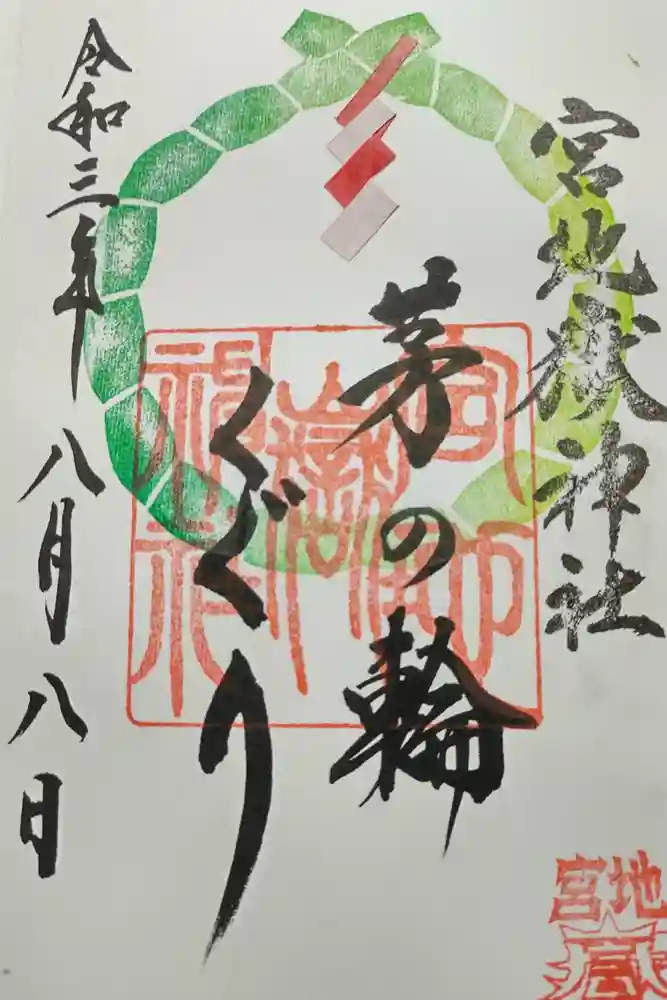 宮地嶽神社
茅の輪
くぐり
令和三年八月八日
宮地
嶽